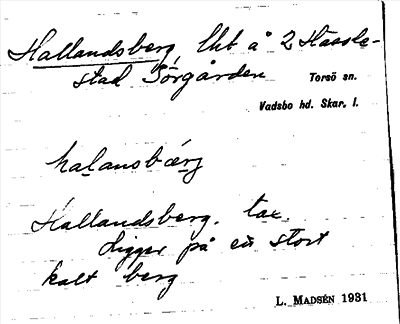 Hallandsberg, lht å 2 Hassle-
stad Sörgården
Torsö sn.
Vadsbo hd. Skar. l.
halansbærj
Hallandsberg. tax.
Ligger på ett stort
kalt berg
L. MADSÉN 1931